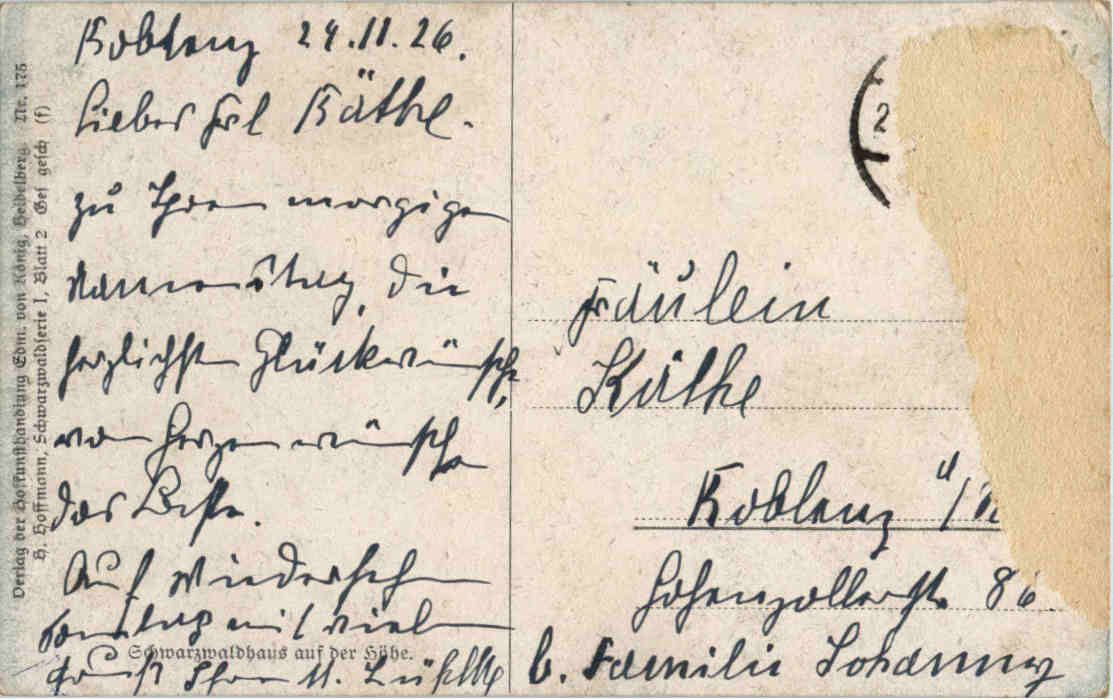 Koblenz 24.11.26.
Liebes Frl Käthe.
zu Ihrem morgigen
Namenstag, die
herzlichsten Glückwünsche,
von Herzen wünsche
das Beste.
Auf Wiedersehen
Sonntag mit vielen
Ihre
Schwarzwaldhaus auf der Höhe.
Verlag der Hofkunsthandlung Edm. von König, Heidelberg. Nr. 175
H. Hoffmann, Schwarzwaldserie I, Blatt 2 Ges gesch (f)
2
Fräulein
Käthe
Koblenz
Hohenzollernstr. 86.
b. Familie